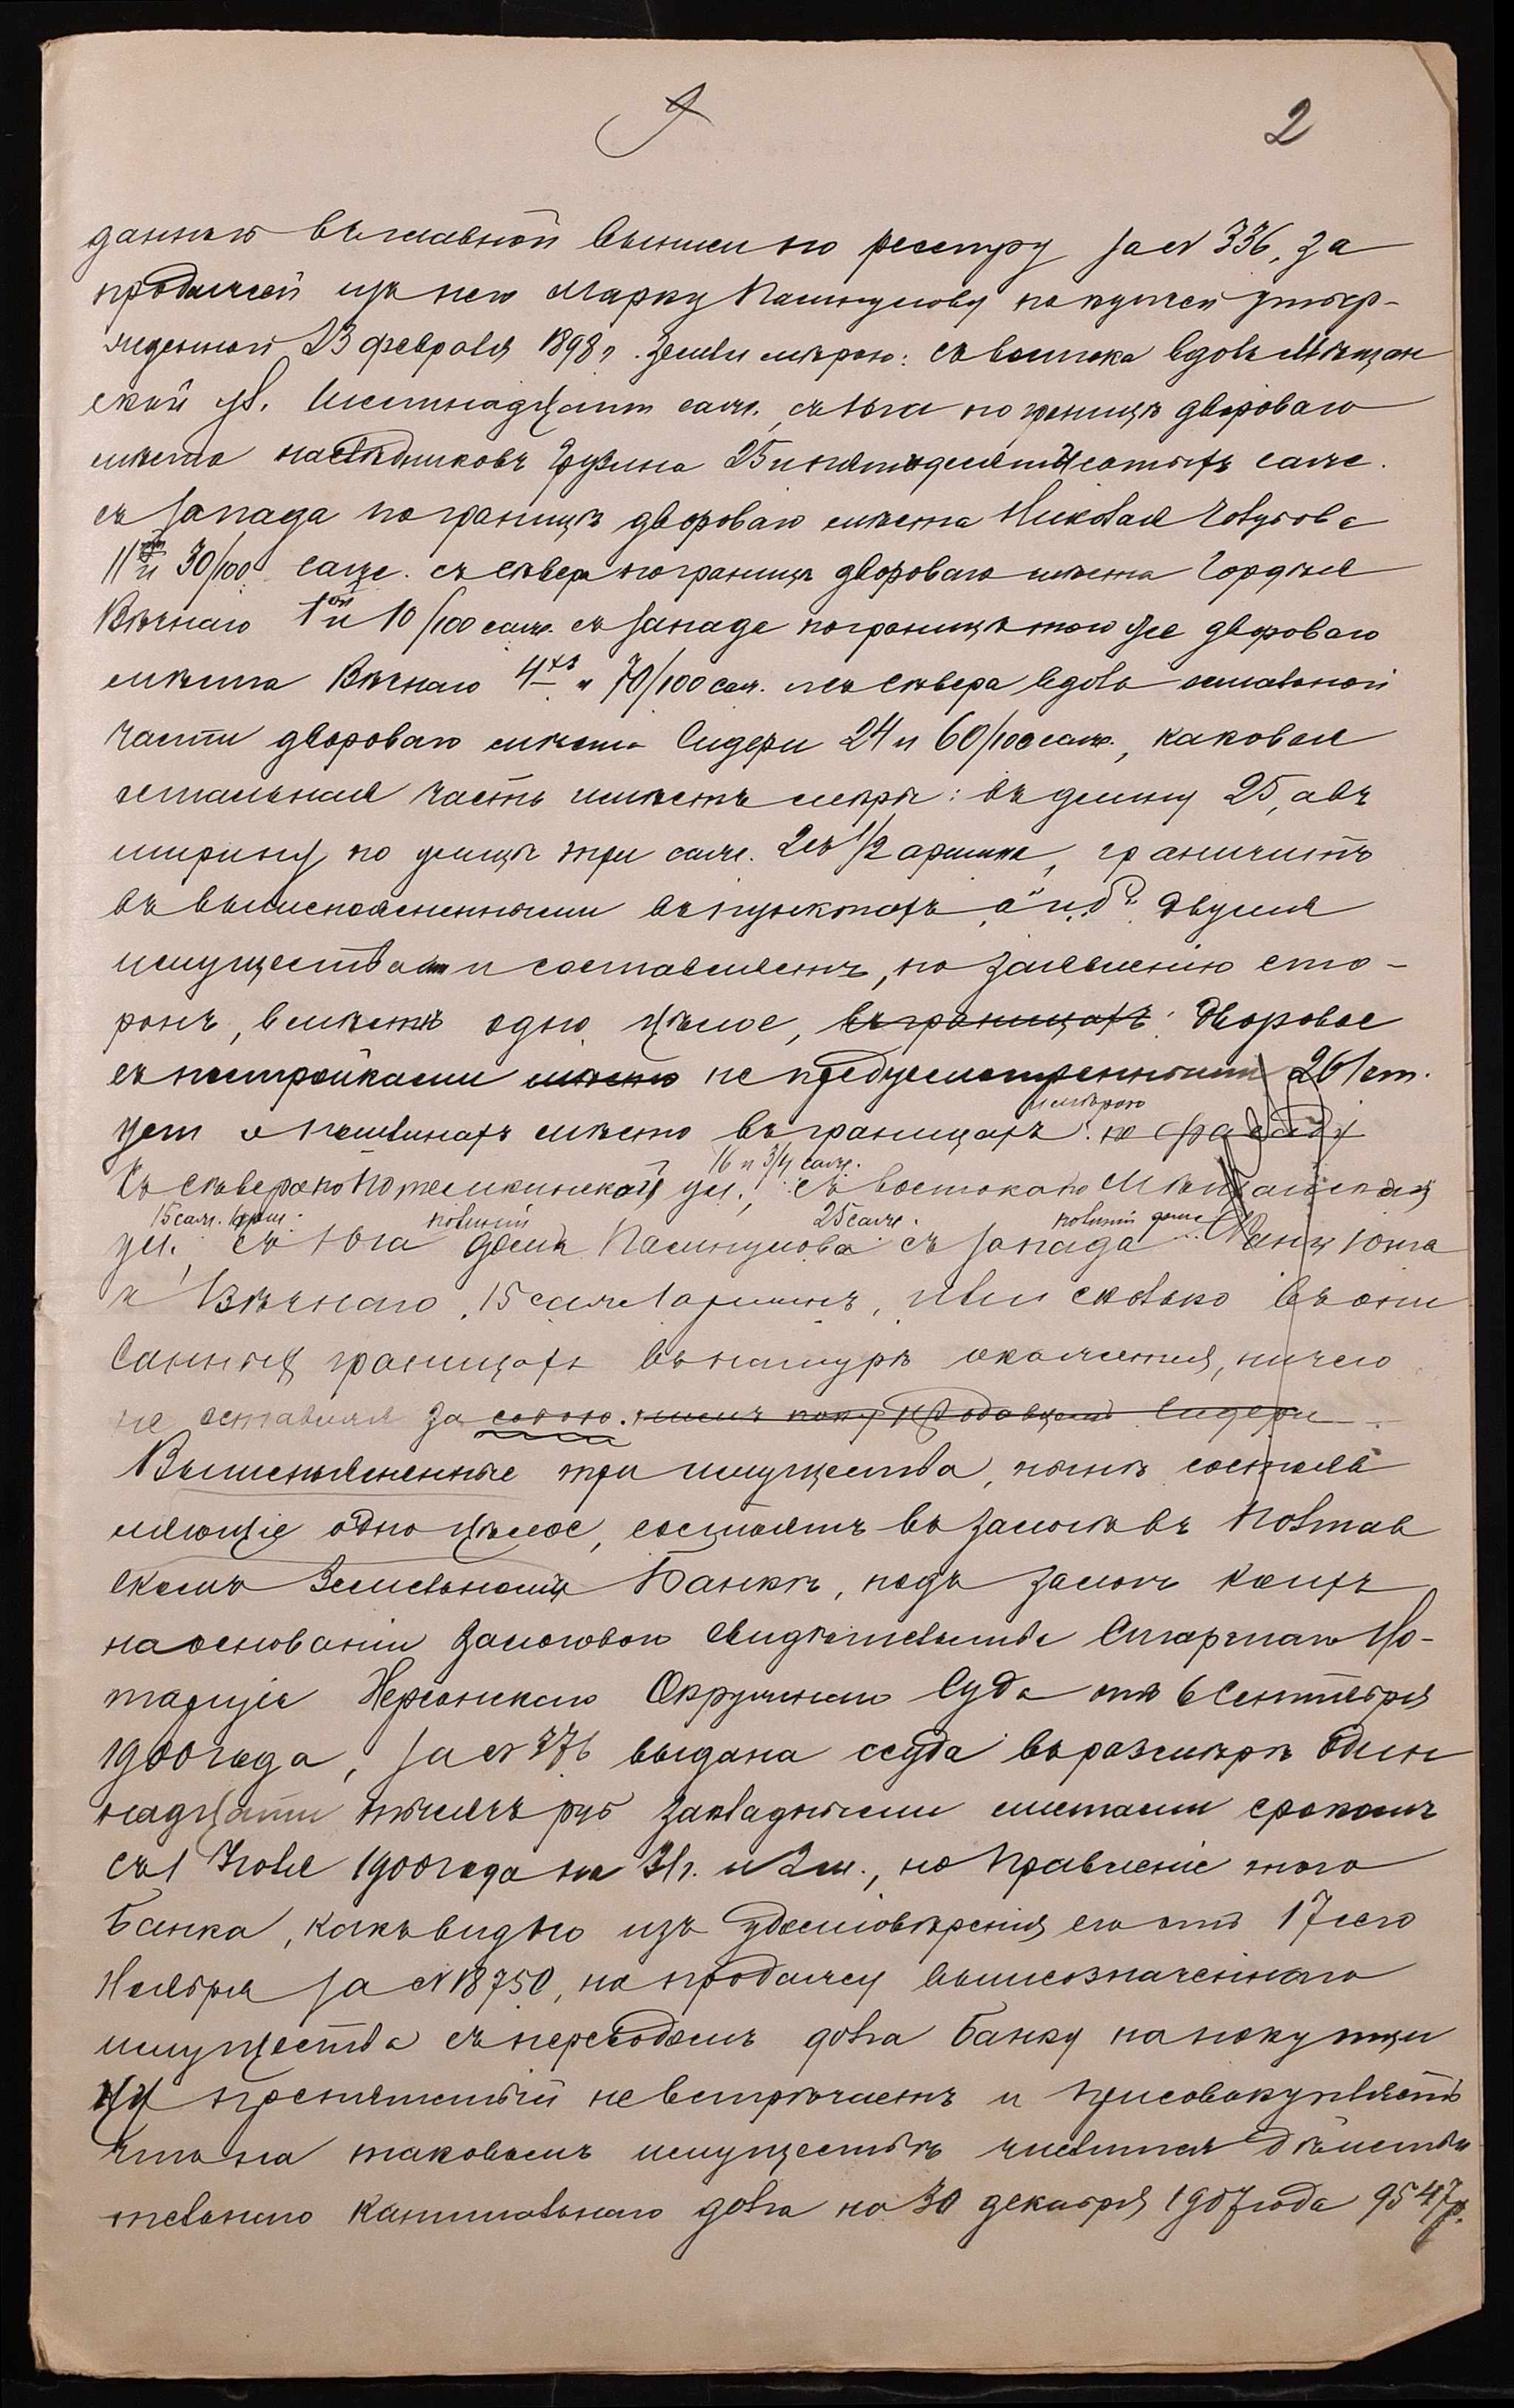 2
данныю въ главной выписи по реестру за № 336, за
продажей изъ нея Марку Пашутулову по купчей утвер-
жденной 23 февраля 1898 г. Земли мѣрою: съ востока вдоль Мѣщан
ской ул. шестнадцать саж., съ юга по границѣ двороваго
мѣста наслѣдниковъ 25 и пятьдесятъ сотыхъ саж.
съ запада по границѣ двороваго мѣста Николая
11 и 30/100 саж. съ сѣвера по границѣ двороваго мѣста Гордѣя
Вѣчнаго 1 и 10/100 саж. съ запада по границѣ того же двороваго
мѣста Вѣчнаго 4хъ и 70/100 саж. и съ сѣвера вдоль остальной
части двороваго мѣста Сидери 24 и 60/100 саж., каковая
остальная часть имѣетъ мѣры: въ длину 25, а въ
ширину по улицѣ три саж. 2 съ 1/2 аршина, граничитъ
съ вышепоясненными въ пунктахъ „а“ и „б“ двумя
имуществами и составляетъ, по заявленію сто-
ронъ, вмѣстѣ одно цѣлое, въ границахъ: Дворовое
съ постройками мѣсто не предусмотренными 261 ст.
уст. о пошлинахъ мѣсто въ границахъ: мѣрою по фасаду
Съ сѣвера по Потемкинской ул., 16 и 3/4 саж. съ востока по Мѣщанской
ул., 15 саж. 1 арш. съ юга домъ Пашутулова 25 саж. съ запада
и Вѣчнаго, 15 саж. 1 аршинъ, или сколько въ опи
санныхъ границахъ въ натурѣ окажется, ничего
не оставляя за собою.
Вышепоясненные три имущества, нынѣ состав
ляющіе одно цѣлое, состоятъ въ залогѣ въ Полтав
скомъ Земельномъ Банкѣ, подъ залогъ коихъ
на основаніи залоговаго свидѣтельства Старшаго Но-
таріуса Херсонскаго Окружнаго Суда отъ 6 Сентября
1900 года, за № 376 выдана ссуда въ размѣрѣ один
надцати тысячъ руб закладными листами срокомъ
съ 1 Іюля 1900 года на 31 г. и 2 м., но Правленіе того
Банка, какъ видно изъ удостовѣренія его отъ 17 сего
Ноября за № 18750, на продажу вышеозначеннаго
имущества съ переводомъ долга Банку на покупщи
цу препятствій не встрѣчаетъ и присовокупляетъ
что на таковомъ имуществѣ числится дѣйстви
тельнаго капитальнаго долга на 30 декабря 1907 года 9547 р.